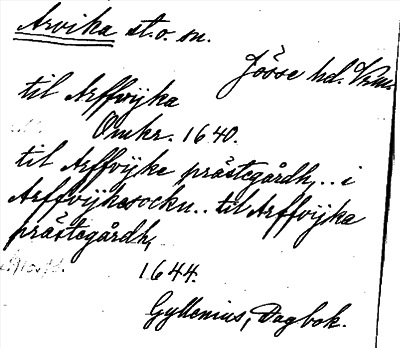 Arvika st. o. sn.
Jösse hd. Vrm.
til Arffvijka
Omkr. 1640.
til Arffvijke prästegårdh,.. i
Arffvijkesockn.. til Arffvijka
prästegårdh,
1644.
Gyllenius, Dagbok.